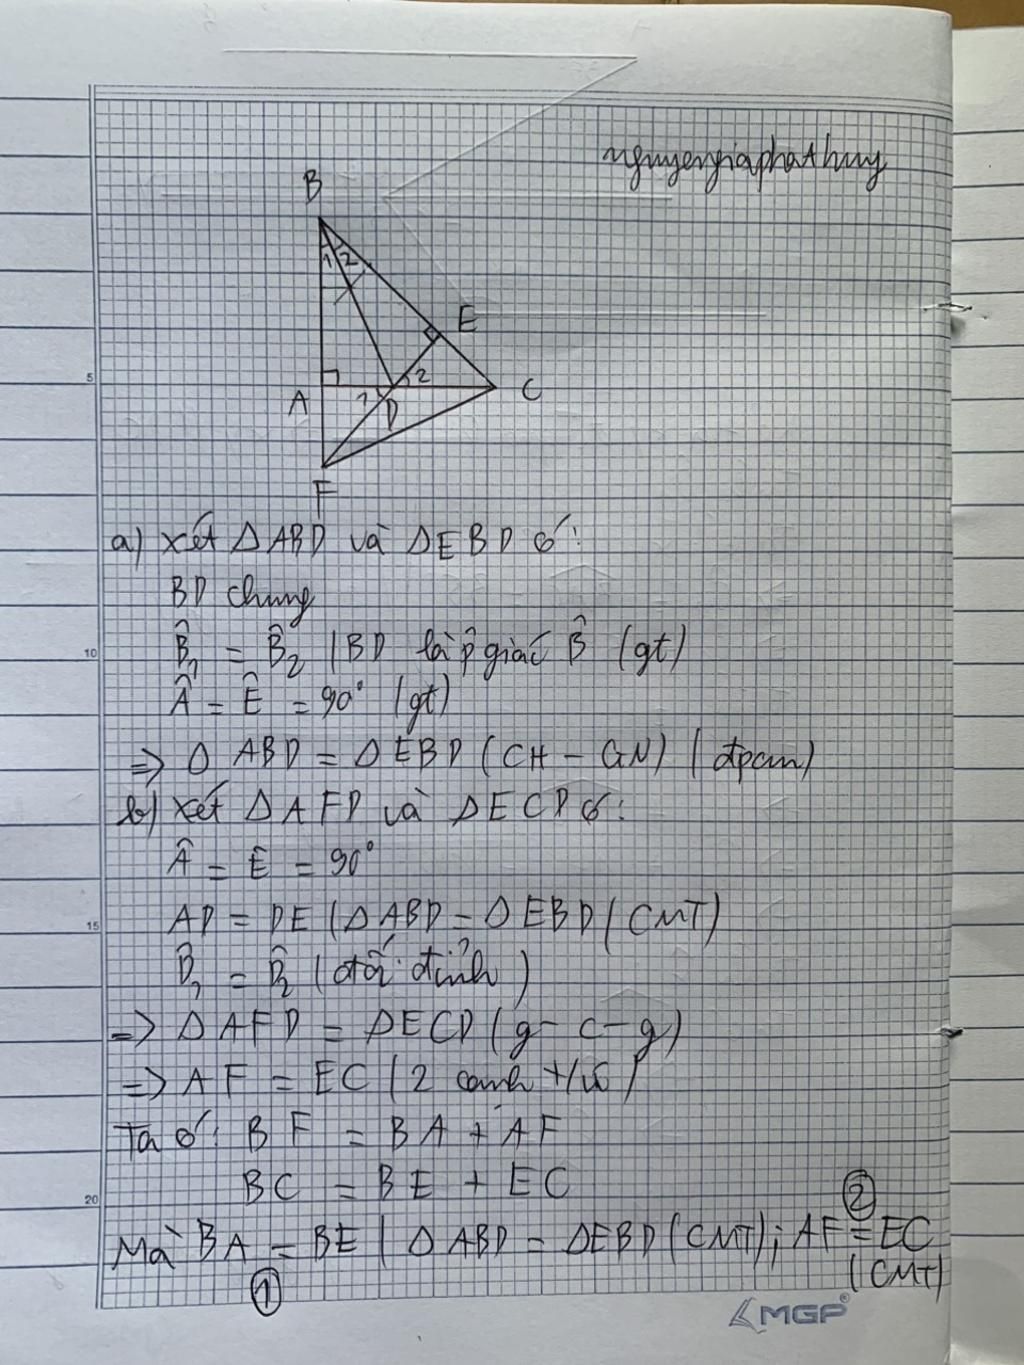 nguyengiaphathuy
B
1 2
E
5
2
A
1
D
C
F
a) xét Δ ABD và Δ EBD có:
BD chung
B̂₁ = B̂₂ (BD là p giác B̂ (gt)
10
Â = Ê = 90° (gt)
=> Δ ABD = Δ EBD (CH - GN) (đpcm)
b) xét Δ AFD và Δ ECD có:
Â = Ê = 90°
15
AD = DE (Δ ABD = Δ EBD (CMT)
D̂₁ = D̂₂ (đối đỉnh)
=> Δ AFD = Δ ECD (g - c - g)
=> AF = EC (2 cạnh t/ư)
Ta có: BF = BA + AF
BC = BE + EC
20
②
Mà BA = BE (Δ ABD = Δ EBD (CMT); AF = EC
(CMT)
①
MGP®